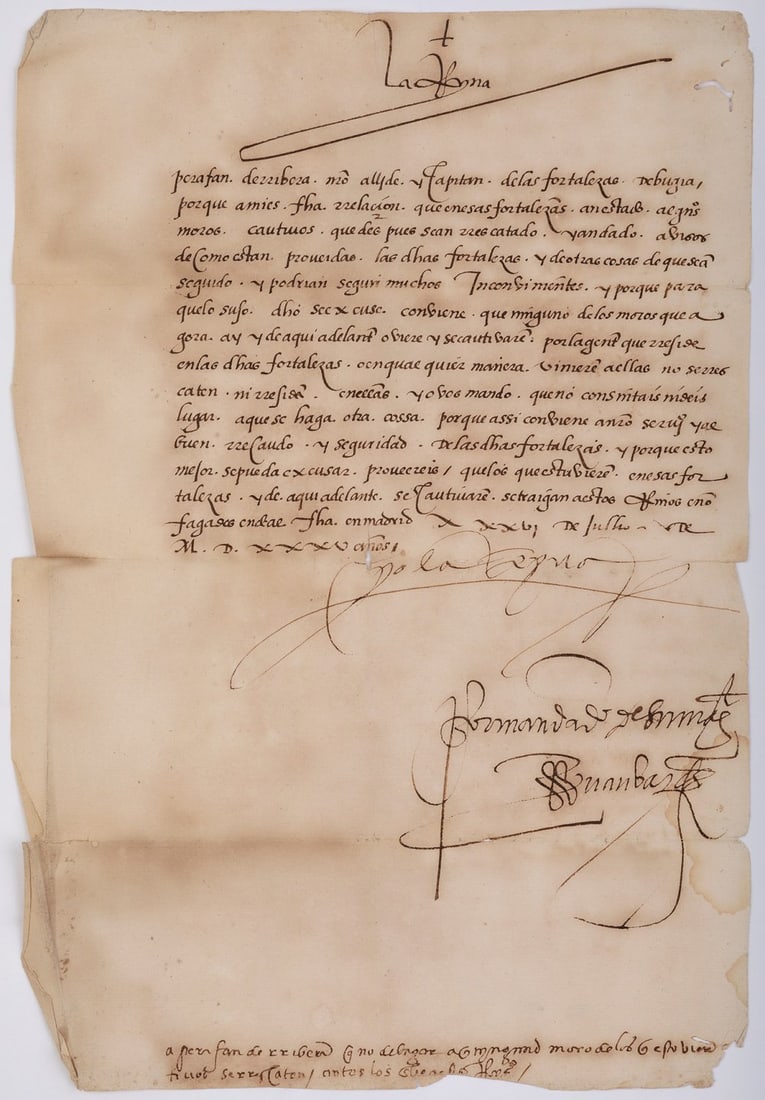 La Reyna
perafan. derribera. nr̄o allj̄de. y Capitan. delas fortalezas. Debugia,
porque amies. fha. rrelaçion. que enesas fortalezas. an estado. algn̄s
moros. cautiuos. que des pues sean rrescatado. y an dado. avisos
de Como estan. proueidas. las dhas fortalezas. y de otras cosas de que sea
seguido. y podrian seguir muchos Inconvinientes. y porque para
que lo suso. dho se ex cuse. conviene. que ninguno delos moros que a
gora. ay y de aqui adelant̄ oviere y se cautivarē. por la gent̄ que rreside
en las dhas fortalezas. o en qual quier manera. vinierē a ellas no se rres
caten. ni rresidā. en ellas. y o vos mando. que no consintais ni deis
lugar. a que se haga otra. cossa. porque assi conviene a nr̄o serui° y al
buen. rrecaudo. y seguridad. De las dhas fortalezas. y porque esto
mejor. se pueda ex cusar. proueereis, que los que estuvierē. en esas for
talezas. y de. aqui adelante. se Cautiuarē. se traigan a estos Rey̅nos e nō
fagades ende al fha. en madrid a xxvi De Julio de
M. D. xxxv años,
yo la Reyna
Juan vazqs
a perafan de rriberā q̄ no de lugar a q̄ ningund moro de los q̄ estoviere
tiuos se rrescaten,